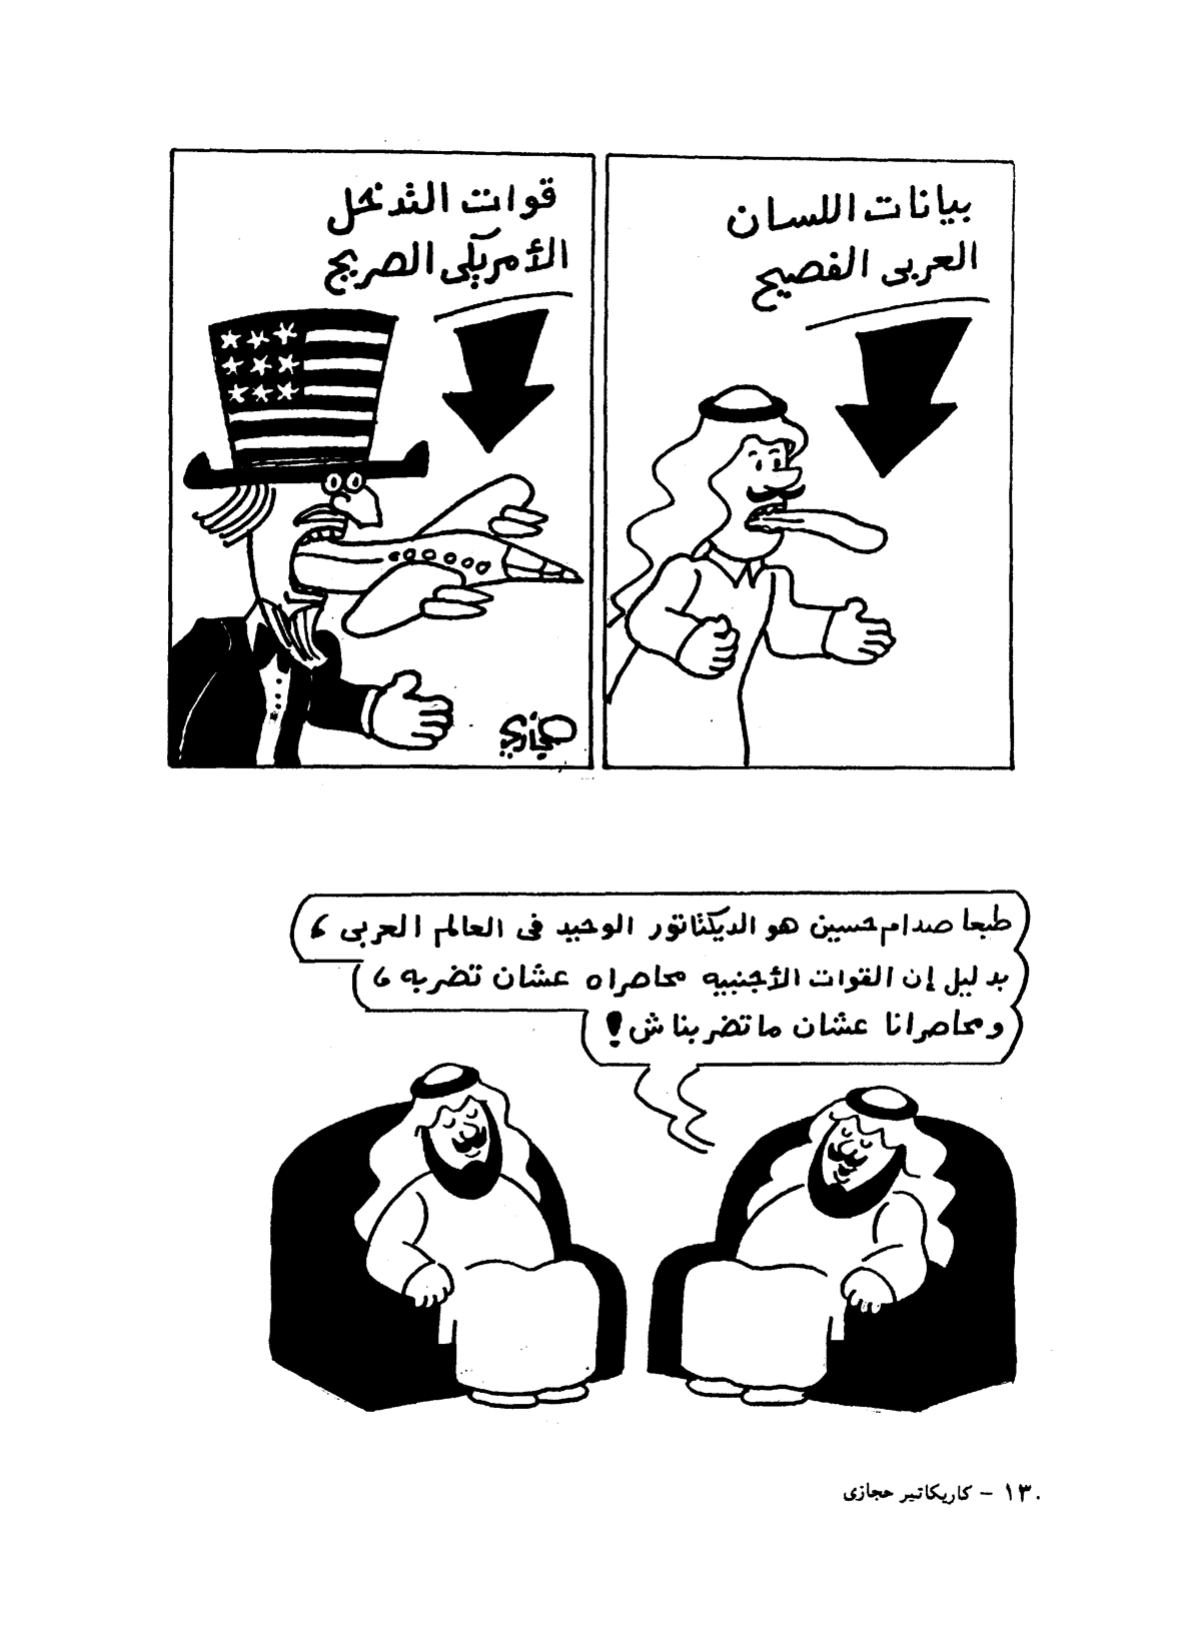 بيانات اللسان
العربى الفصيح
قوات التدخل
الأمريكى الصريح
حجازى
طبعا صدام حسين هو الديكتاتور الوحيد فى العالم العربى ،
بدليل إن القوات الأجنبيه محاصراه عشان تضربه ،
ومحاصرانا عشان ماتضربناش !
١٣٠ - كاريكاتير حجازى